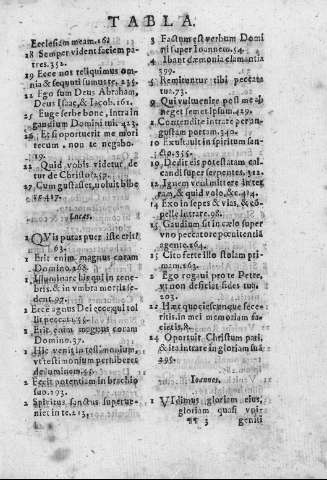 TABLA.
Ecclesiam meam.161
18 Semper vident faciem patres.352.
19 Ecce nos reliquimus omnia & sequuti sumus te.235.
22 Ego sum Deus Abraham, Deus Isaac, & Iacob.161.
25 Euge serbe bone, intra in gaudium Domini tui.423.
26 Et si oportuerit me mori tecum. non te negabo.
19.
22 Quid vobis videtur de
tur de Christo?
27 Cum gustasset, noluit bibere 417.
Lucas.
1 QVis putas puer iste erit?
63.
1 Erit enim magnus coram
Domino.268.
1 Illuminare his qui in tenebris, & in vmbra mortis sedent.97.
1 Ecce agnus Dei ecce qui tollit
1 Erit enim magnus coram
Domino.37.
1 Hic venit in testimonium, vt testimonium perhiberet de lumine.
2 Fecit potentiam in brachio suo.193.
2 Spiritus sanctus superueniet in te.213.
3 Factum est verbum Domini super Ioannem.54.
4 Ibant dæmonia clamantia
399.
5 Remittuntur tibi peccata tua.73.
9 Qui vult venire post me abneget semetipsum.429.
Contendite intrare per angustam portam.340.
10 Exultauit in spiritu sancto.355.
10 Dedit eis potestatem calcandi super serpentes.312.
12 Ignem veni mittere in terram, & quid volo, &c.
14 Exo in sepes & vias, & compelle intrare.98.
15 Gaudium sit in cælo super vno peccatore pœnitentiã agente.164.
15 Cito ferte illo stolam primam.163.
2 Ego rogaui pro te Petre, vt non deficiat fides tua.
203.
22 Hæc quotiescunque feceritis, in mei memoriam facietis.8.
24 Oportuit Christum pati, & ita intrare in gloriam suã
395.
Ioannes.
1 VIdimus gloriam eius,
gloriam quasi vni-
¶¶ 3 geniti